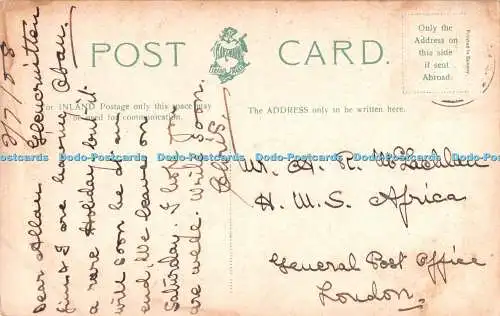 POST CARD.
Only the
Address on
this side
if sent
Abroad.
For INLAND Postage only this space may
be used for communication.
The ADDRESS only to be written here.
2/7/
Oban.
Dear Allan
& I are having
a rare Holiday but it
will soon be at an
end. We leave on
Saturday. I hope you
are well. Write soon.
Mr. A. R. McLachlan
H. M. S. Africa
General Post Office
London.
Dodo-Postcards Dodo-Postcards Dodo-Postcards Dodo-Postcards Dodo-Postcards